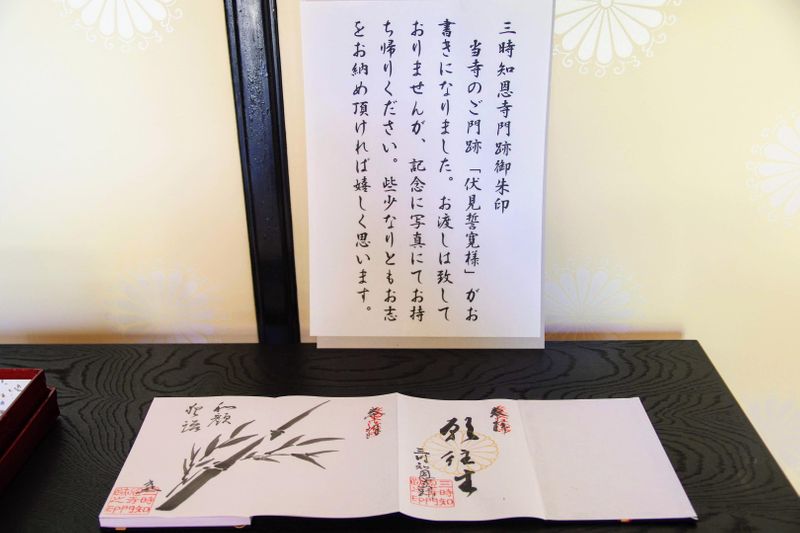 三時知恩寺門跡御朱印
当寺のご門跡「伏見誓寛様」がお
書きになりました。お渡しは致して
おりませんが、記念に写真にてお持
ち帰りください。些少なりともお志
をお納め頂ければ嬉しく思います。
奉拝
願往生
三時知恩寺
奉拝
和顔
愛語